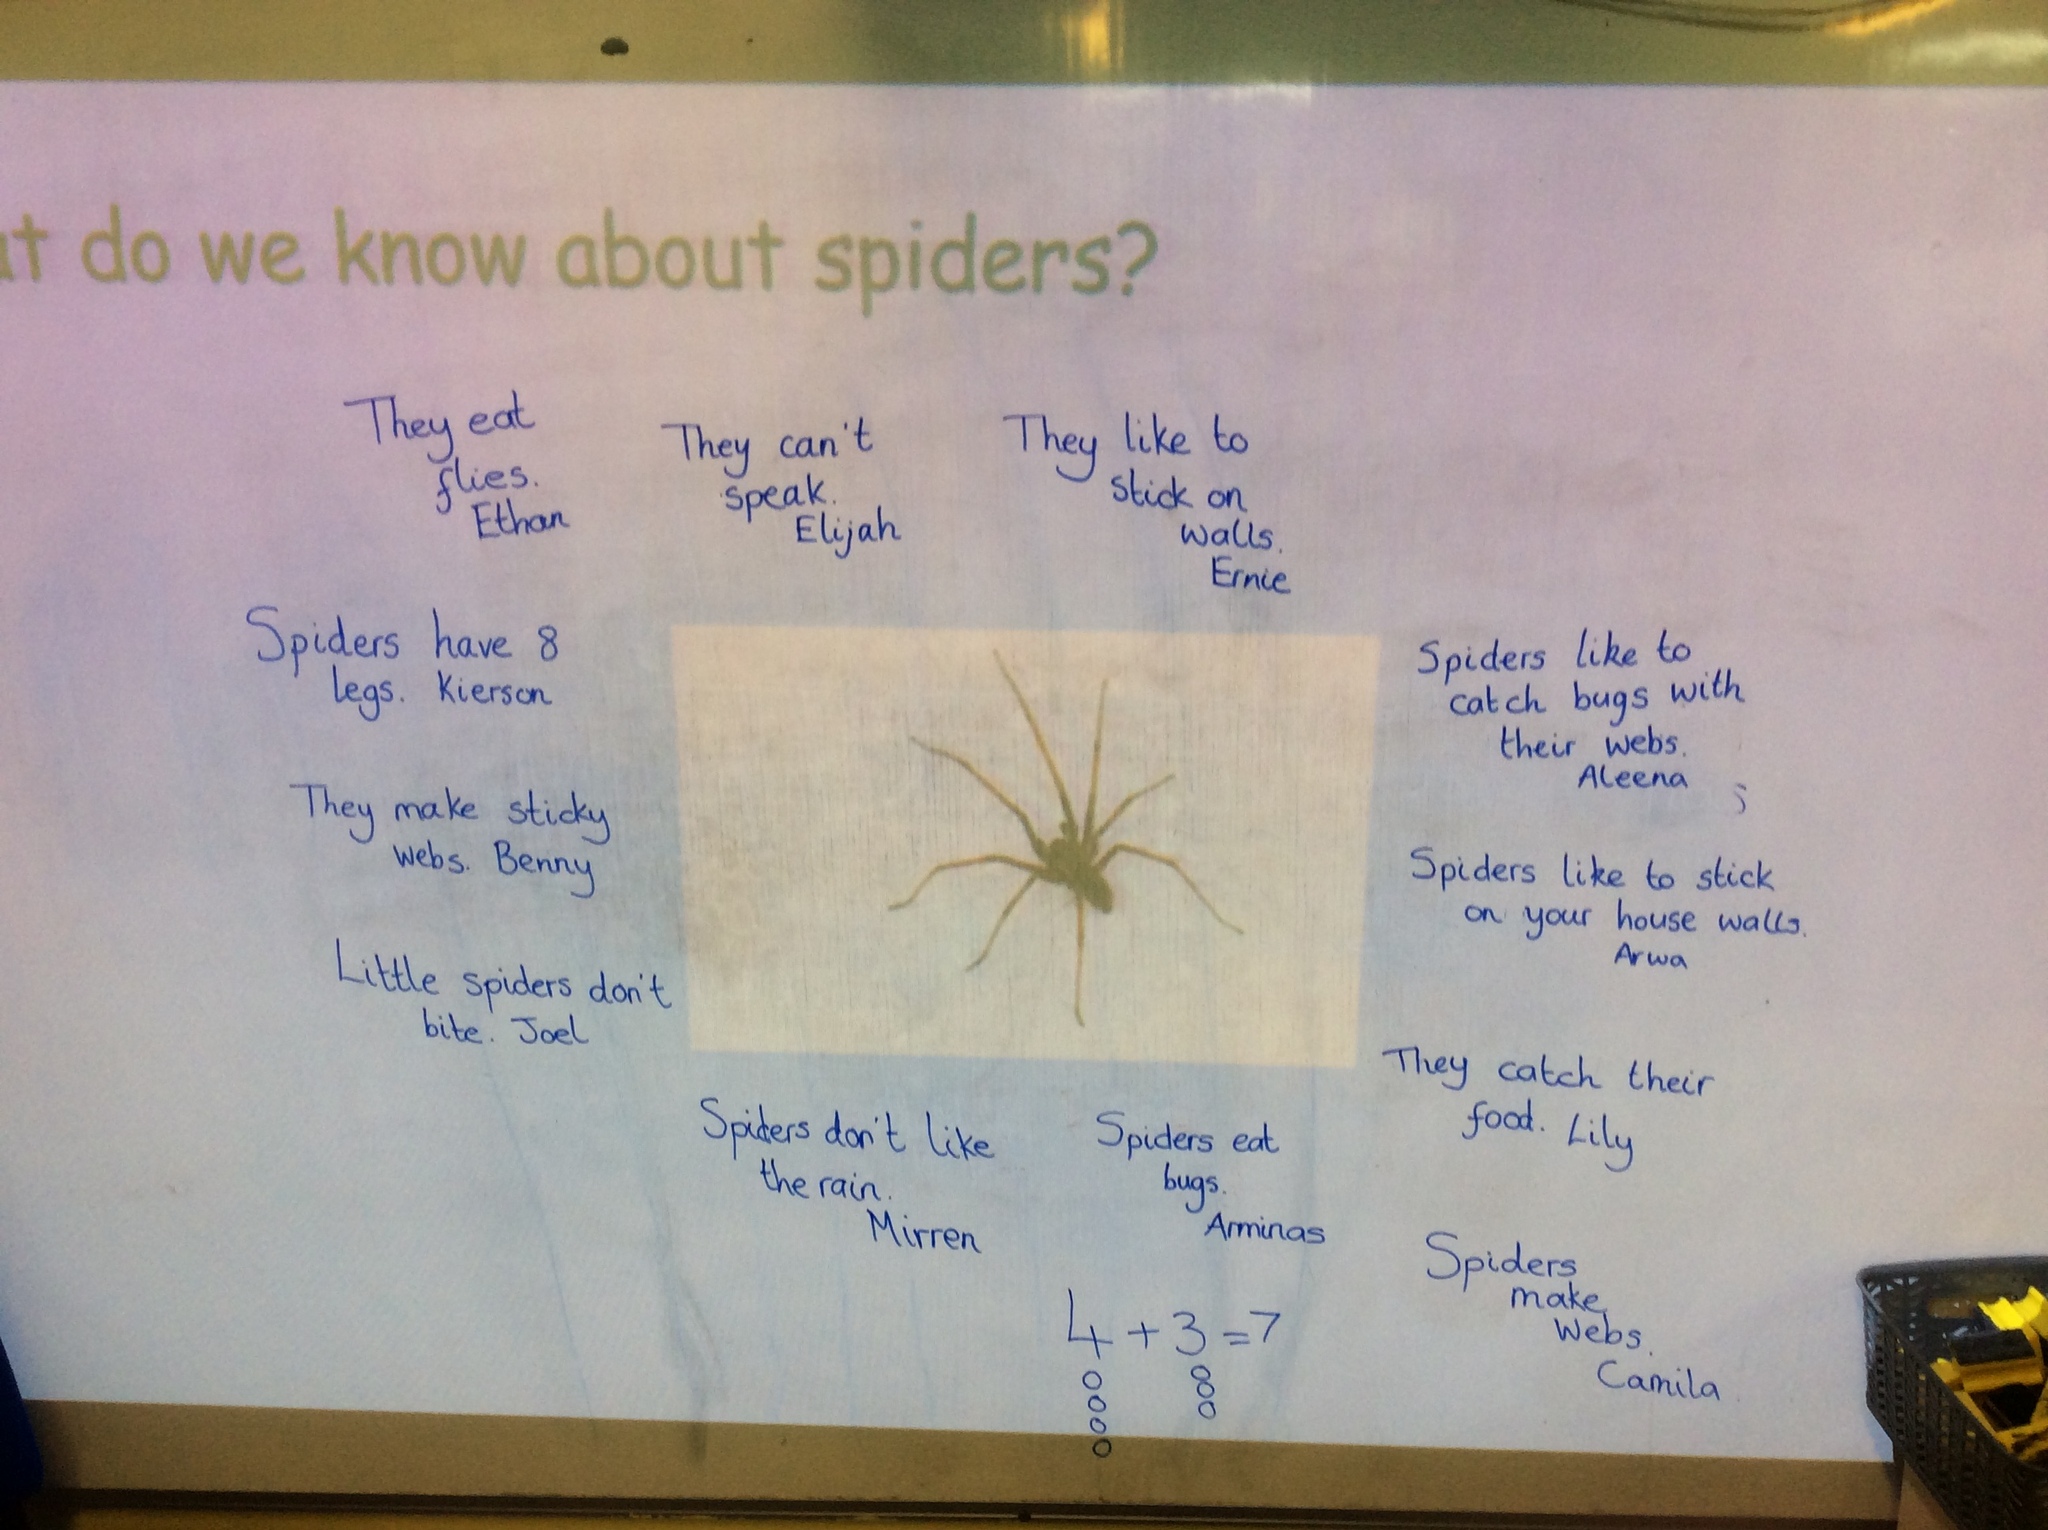 at do we know about spiders?
They eat
flies.
Ethan
They can't
speak.
Elijah
They like to
stick on
walls.
Ernie
Spiders have 8
legs. Kierson
They make sticky
webs. Benny
Little spiders don't
bite. Joel
Spiders like to
catch bugs with
their webs.
Aleena
Spiders like to stick
on your house walls.
Arwa
They catch their
food. Lily
Spiders don't like
the rain.
Mirren
Spiders eat
bugs.
Arminas
Spiders
make
webs.
Camila
4 + 3 = 7